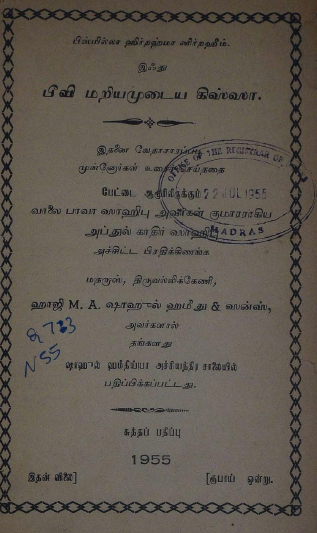 பிஸ்மில்லா ஹிர்றஹ்மா னிர்றஹீம்.
இஃது
பீவி மரியமுடைய கிஸ்ஸா.
இதனை
முன்னோர்கள்
பேட்டை
வாலை பாவா ஸாஹிபு அவர்கள் குமாரராகிய
அப்துல் காதிர் ஸாஹிபு
அச்சிட்ட பிரதிக்கிணங்க
மதராஸ், திருவல்லிக்கேணி,
ஹாஜி M. A. ஷாஹுல் ஹமீது & ஸன்ஸ்,
அவர்களால்
தங்களது
ஷாஹுல் ஹமீதிய்யா அச்சியந்திர சாலையில்
பதிப்பிக்கப்பட்டது.
சுத்தப் பதிப்பு
1955
இதன் விலை] [ரூபாய் ஒன்று.
OFFICE OF THE REGISTRAR OF
22 JUL 1955
MADRAS
N55